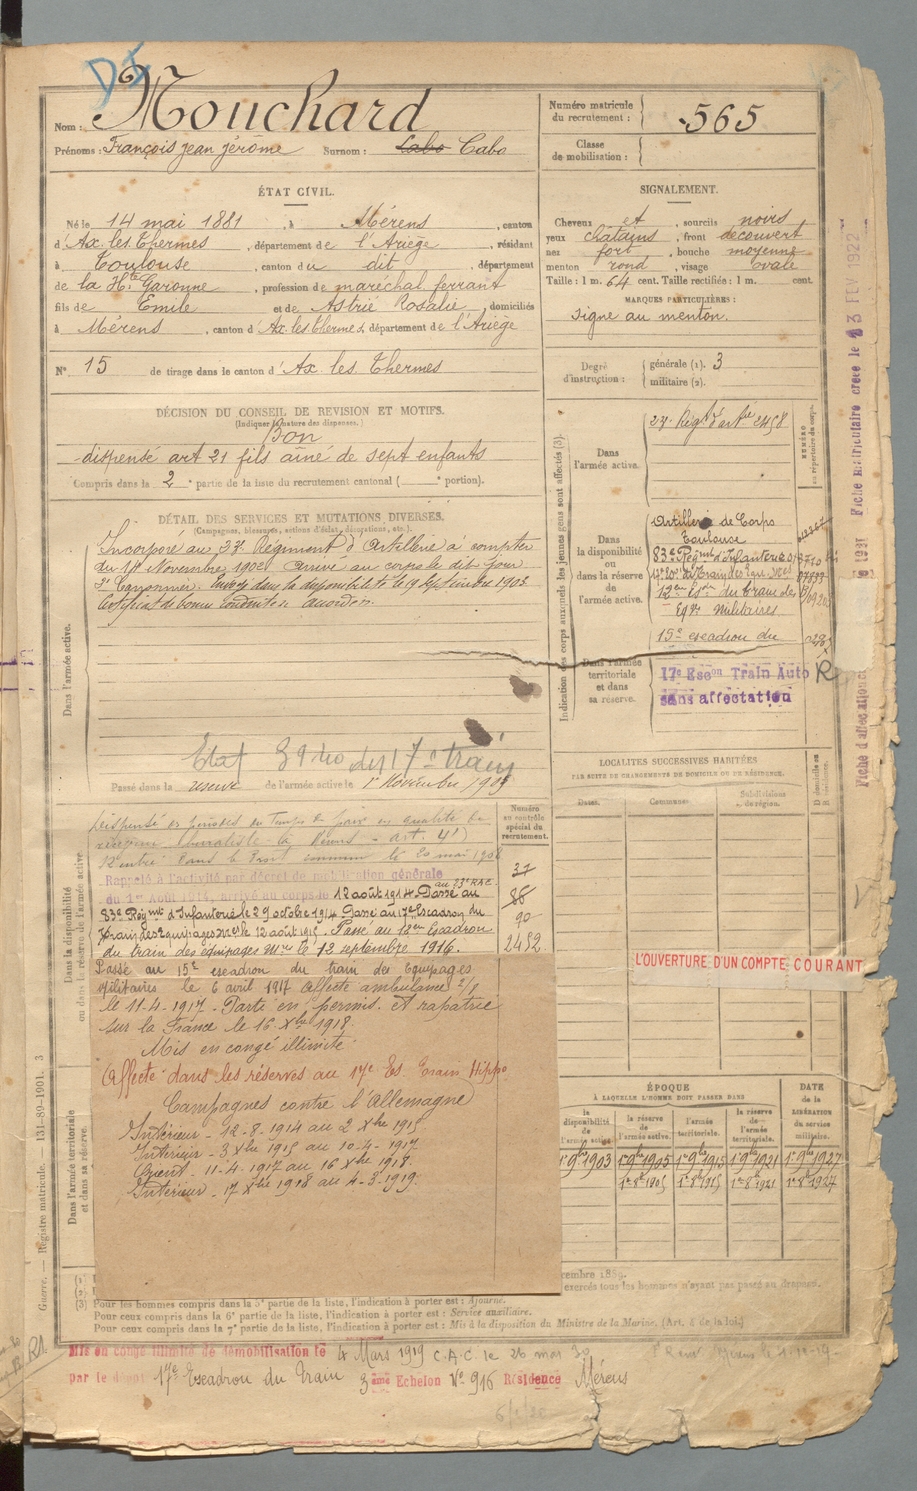 DI
Nom : Mouchard
Prénoms : François jean jérôme Surnom : Cabo Cabo
Numéro matricule du recrutement : 565
Classe de mobilisation :
ÉTAT CIVIL.
Né le 14 mai 1881, à Mérens, canton
d'Ax les Thermes, département de l'Ariège, résidant
à Toulouse, canton du dit, département
de la Hte Garonne, profession de maréchal ferrant
fils de Emile et de Astrié Rosalie, domiciliés
à Mérens, canton d'Ax les Thermes, département de l'Ariège
N° 15 de tirage dans le canton d'Ax les Thermes
SIGNALEMENT.
Cheveux et, sourcils noirs
yeux châtains, front découvert
nez fort, bouche moyenne
menton rond, visage ovale
Taille : 1 m. 64 cent. Taille rectifiée : 1 m. cent.
MARQUES PARTICULIÈRES :
signe au menton.
Degré d'instruction : générale (1). 3
militaire (2).
DÉCISION DU CONSEIL DE REVISION ET MOTIFS.
(Indiquer la nature des dispenses.)
Bon
dispensé art 21 fils aîné de sept enfants
Compris dans la 2e partie de la liste du recrutement cantonal ( e portion).
DÉTAIL DES SERVICES ET MUTATIONS DIVERSES.
(Campagnes, blessures, actions d'éclat, décorations, etc.)
Dans l'armée active.
Incorporé au 23e Régiment d'Artillerie à compter
du 1er Novembre 1902 arrivé au corps le dit jour
2e Canonnier. Envoyé dans la disponibilité le 19 Septembre 1903.
Certificat de bonne conduite accordé.
Etat 39 40 du 17e train
Passé dans la réserve de l'armée active le 1er Novembre 1905
Indication des corps auxquels les jeunes gens sont affectés (3).
NUMÉRO au répertoire du corps.
Dans l'armée active.
23e Régt d'artie 2458
Dans la disponibilité ou dans la réserve de l'armée active.
Artillerie de Corps
Toulouse
83e Régmt d'Infanterie
12eme Esdn du train des
Eqes Militaires
15e escadron du
Dans l'armée territoriale et dans sa réserve.
17e Escon Train Auto R
sans affectation
LOCALITÉS SUCCESSIVES HABITÉES
PAR SUITE DE CHANGEMENTS DE DOMICILE OU DE RÉSIDENCE.
Dates.
Communes.
Subdivisions de région.
D domicile ou
Numéro au contrôle spécial du recrutement.
37
86
90
2452
Dans la disponibilité ou dans la réserve de l'armée active.
Rappelé à l'activité par décret de mobilisation générale
du 1er Août 1914, arrivé au corps le 12 août 1914 au 23e RAC. Passé au
83e Régmt d'Infanterie le 29 octobre 1914 Passé au 17e Escadron du
Train des Equipages Mres le 12 août 1915. Passé au 18eme Escadron
du train des équipages Mres le 12 septembre 1916.
Passé au 15e escadron du train des Equipages
Militaires le 6 avril 1917 Affecté ambulance
le 11-4-1917. Parti en permis. et rapatrié
sur la France le 16 Xbre 1918.
Mis en congé illimité
Affecté dans les réserves au 17e Es. Train Hippo
Campagnes contre l'Allemagne
Intérieur - 12-8-1914 au 2 Xbre 1915
Intérieur - 3 Xbre 1915 au 10-4-1917
Orient - 11-4-1917 au 16 Xbre 1918.
Intérieur - 17 Xbre 1918 au 4-3-1919.
Dans l'armée territoriale et dans sa réserve.
L'OUVERTURE D'UN COMPTE COURANT
ÉPOQUE
À LAQUELLE L'HOMME DOIT PASSER DANS
la disponibilité de l'armée active
la réserve de l'armée active.
l'armée territoriale.
la réserve de l'armée territoriale.
DATE de la LIBÉRATION du service militaire.
1er 9bre 1903 1er 9bre 1905 1er 9bre 1915 1er 9bre 1921 1er 9bre 1927
1er 8bre 1905 1er 8bre 1915 1er 8bre 1921 1er 8bre 1927
cembre 1889.
exercés tous les hommes n'ayant pas passé au drapeau.
(3) Pour les hommes compris dans la 5e partie de la liste, l'indication à porter est : Ajourné.
Pour ceux compris dans la 6e partie de la liste, l'indication à porter est : Service auxiliaire.
Pour ceux compris dans la 7e partie de la liste, l'indication à porter est : Mis à la disposition du Ministre de la Marine. (Art. 4 de la loi.)
Mis en congé illimité de démobilisation le 4 Mars 1919 C.A.C. le 26 mai 30
par le dépôt 17e Escadron du Train 3ème Echelon N° 916 Résidence Mérens
Guerre. — Registre matricule. 131-89-1901. 3
Fiche matriculaire créée le 23 FEV 1922